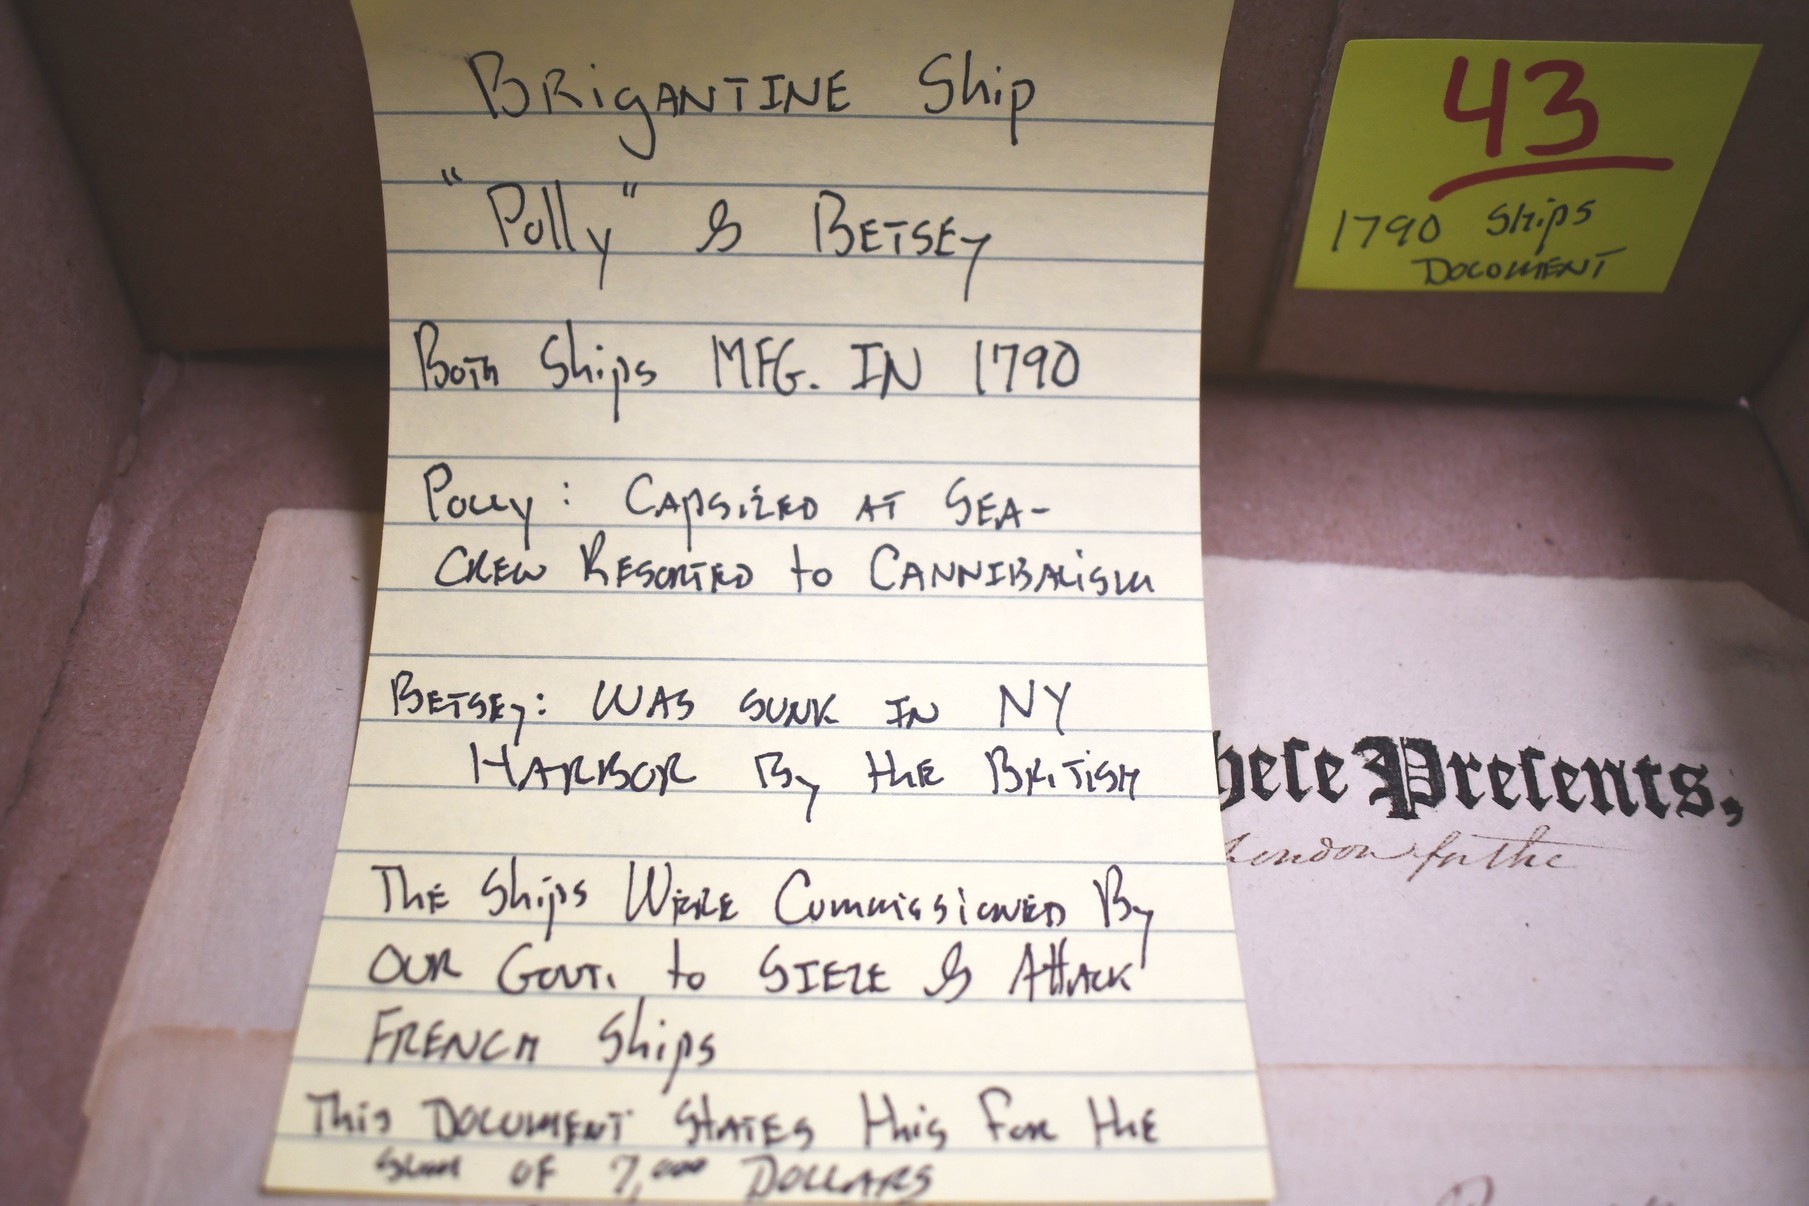 Brigantine Ship
"Polly" & Betsey
Both Ships MFG. IN 1790
Polly: Capsized at Sea-
Crew Resorted to Cannibalism
Betsey: WAS SUNK IN NY
HARBOR By the British
The Ships Were Commissioned By
OUR Govt. to SIEZE & Attack
FRENCH Ships
This DOCUMENT STATES this for the
sum OF 7,000 DOLLARS
43
1790 Ships
DOCUMENT
heſe Preſents,
London for the